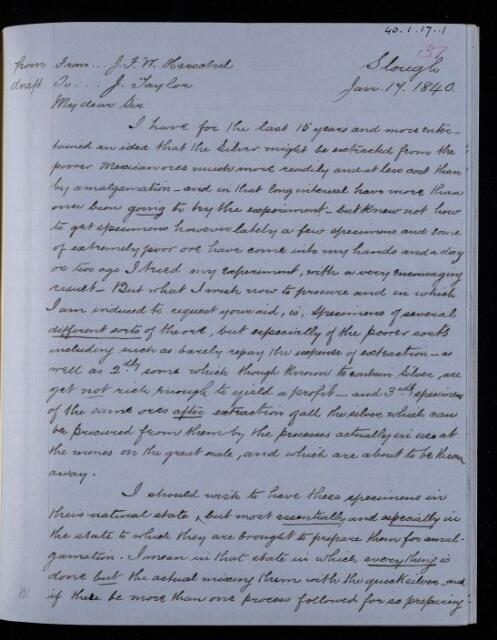 40.1.17.1
37
from From... J. F. W. Herschel Slough
draft To... J. Taylor Jan. 17. 1840.
My dear Sir
I have for the last 15 years and more enter-
tained an idea that the Silver might be extracted from the
poorer Mexican ores much more readily and at less cost than
by amalgamation - and in that long interval have more than
once been going to try the experiment - but knew not how
to get specimens however lately a few specimens and some
of extremely poor ore have come into my hands and a day
or two ago I tried my experiment, with a very encouraging
result - But what I wish now to procure and in which
I am induced to request your aid, is, Specimens of several
different sorts of the ore, but especially of the poorer sorts
including such as barely repay the expense of extraction - as
well as 2dly some which though known to contain Silver, are
yet not rich enough to yield a profit - and 3rdly specimens
of the same ores after extraction of all the silver which can
be procured from them by the processes actually in use at
the mines on the great scale, and which are about to be thrown
away.
I should wish to have these specimens in
their natural state, but most essentially and especially in
the state to which they are brought to prepare them for amal-
gamation. I mean in that state in which everything is
done but the actual mixing them with the quicksilver and
if there be more than one process followed for so preparing